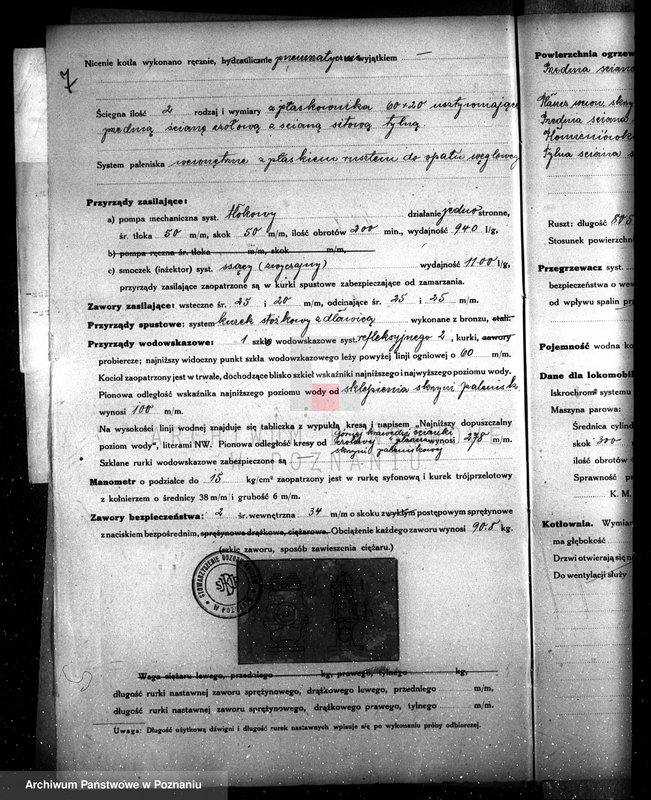 7
Nicenie kotła wykonano ręcznie, hydraulicznie pneumatycznie wyjątkiem —
Ścięgna ilość 2 rodzaj i wymiary z płaskownika 60×20 usztywniające
przednią ścianę z rołową z ścianą sitową tylną
System paleniska wewnętrzne z płaskiem rusztem do opału węglowego
Przyrządy zasilające:
a) pompa mechaniczna syst. tłokowy działanie jedno stronne,
śr. tłoka 50 m/m, skok 50 m/m, ilość obrotów 200 min., wydajność 940 l/g,
b) pompa ręczna śr. tłoka m/m, skok m/m,
c) smoczek (inżektor) syst. ssący (zwyczajny) wydajność 1100 l/g,
przyrządy zasilające zaopatrzone są w kurki spustowe zabezpieczające od zamarzania.
Zawory zasilające: wsteczne śr. 25 i 20 m/m, odcinające śr. 25 i 25 m/m.
Przyrządy spustowe: system kurek stożkowy z dławicą wykonane z bronzu, stali.
Przyrządy wodowskazowe: 1 szkło wodowskazowe syst. refleksyjnego 2, kurki, zawory
probiercze; najniższy widoczny punkt szkła wodowskazowego leży powyżej linji ogniowej o 60 m/m.
Kocioł zaopatrzony jest w trwałe, dochodzące blisko szkieł wskaźniki najniższego i najwyższego poziomu wody.
Pionowa odległość wskaźnika najniższego poziomu wody od sklepienia skrzyni palenisk.
wynosi 100 m/m.
Na wysokości linji wodnej znajduje się tabliczka z wypukłą kresą i napisem „Najniższy dopuszczalny
poziom wody", literami NW. Pionowa odległość kresy od górnej krawędzi ścianki wynosi 275 m/m.
skrzyni paleniskowej
Szklane rurki wodowskazowe zabezpieczone
Manometr o podziałce do 15 kg/cm² zaopatrzony jest w rurkę syfonową i kurek trójprzelotowy
z kolnierzem o średnicy 38 m/m i grubość 6 m/m.
Zawory bezpieczeństwa: 2 śr. wewnętrzna 34 m/m o skoku zwykłym postępowym sprężynowe
z naciskiem bezpośrednim, sprężynowe drążkowe, ciężarowe. Obciążenie każdego zaworu wynosi 90.8 kg.
(szkic zaworu, sposób zawieszenia ciężaru.)
STOWARZYSZENIE DOZORU
W POZNANIU
Waga ciężaru lewego, przedniego kg, prawego, tylnego kg,
długość rurki nastawnej zaworu sprężynowego, drążkowego lewego, przedniego m/m,
długość rurki nastawnej zaworu sprężynowego, drążkowego prawego, tylnego m/m.
Uwaga: Długość użytkową dźwigni i długość rurek nastawnych wpisuje się po wykonaniu próby odbiorczej.
Powierzchnia ogrzew
Przednia ściana
Przednia ściana
tylna ściana
Ruszt: długość 805
Stosunek powierzchni
Przegrzewacz syst.
bezpieczeństwa o we
od wpływu spalin
Pojemność wodna ko
Dane dla lokomobil
Iskrochron systemu
Maszyna parowa:
Średnica cylind
skok 300
ilość obrotów
Sprawność p
K. M.
Kotłownia. Wymiar
ma głębokość
Drzwi otwierają się na
Do wentylacji służy
Archiwum Państwowe w Poznaniu